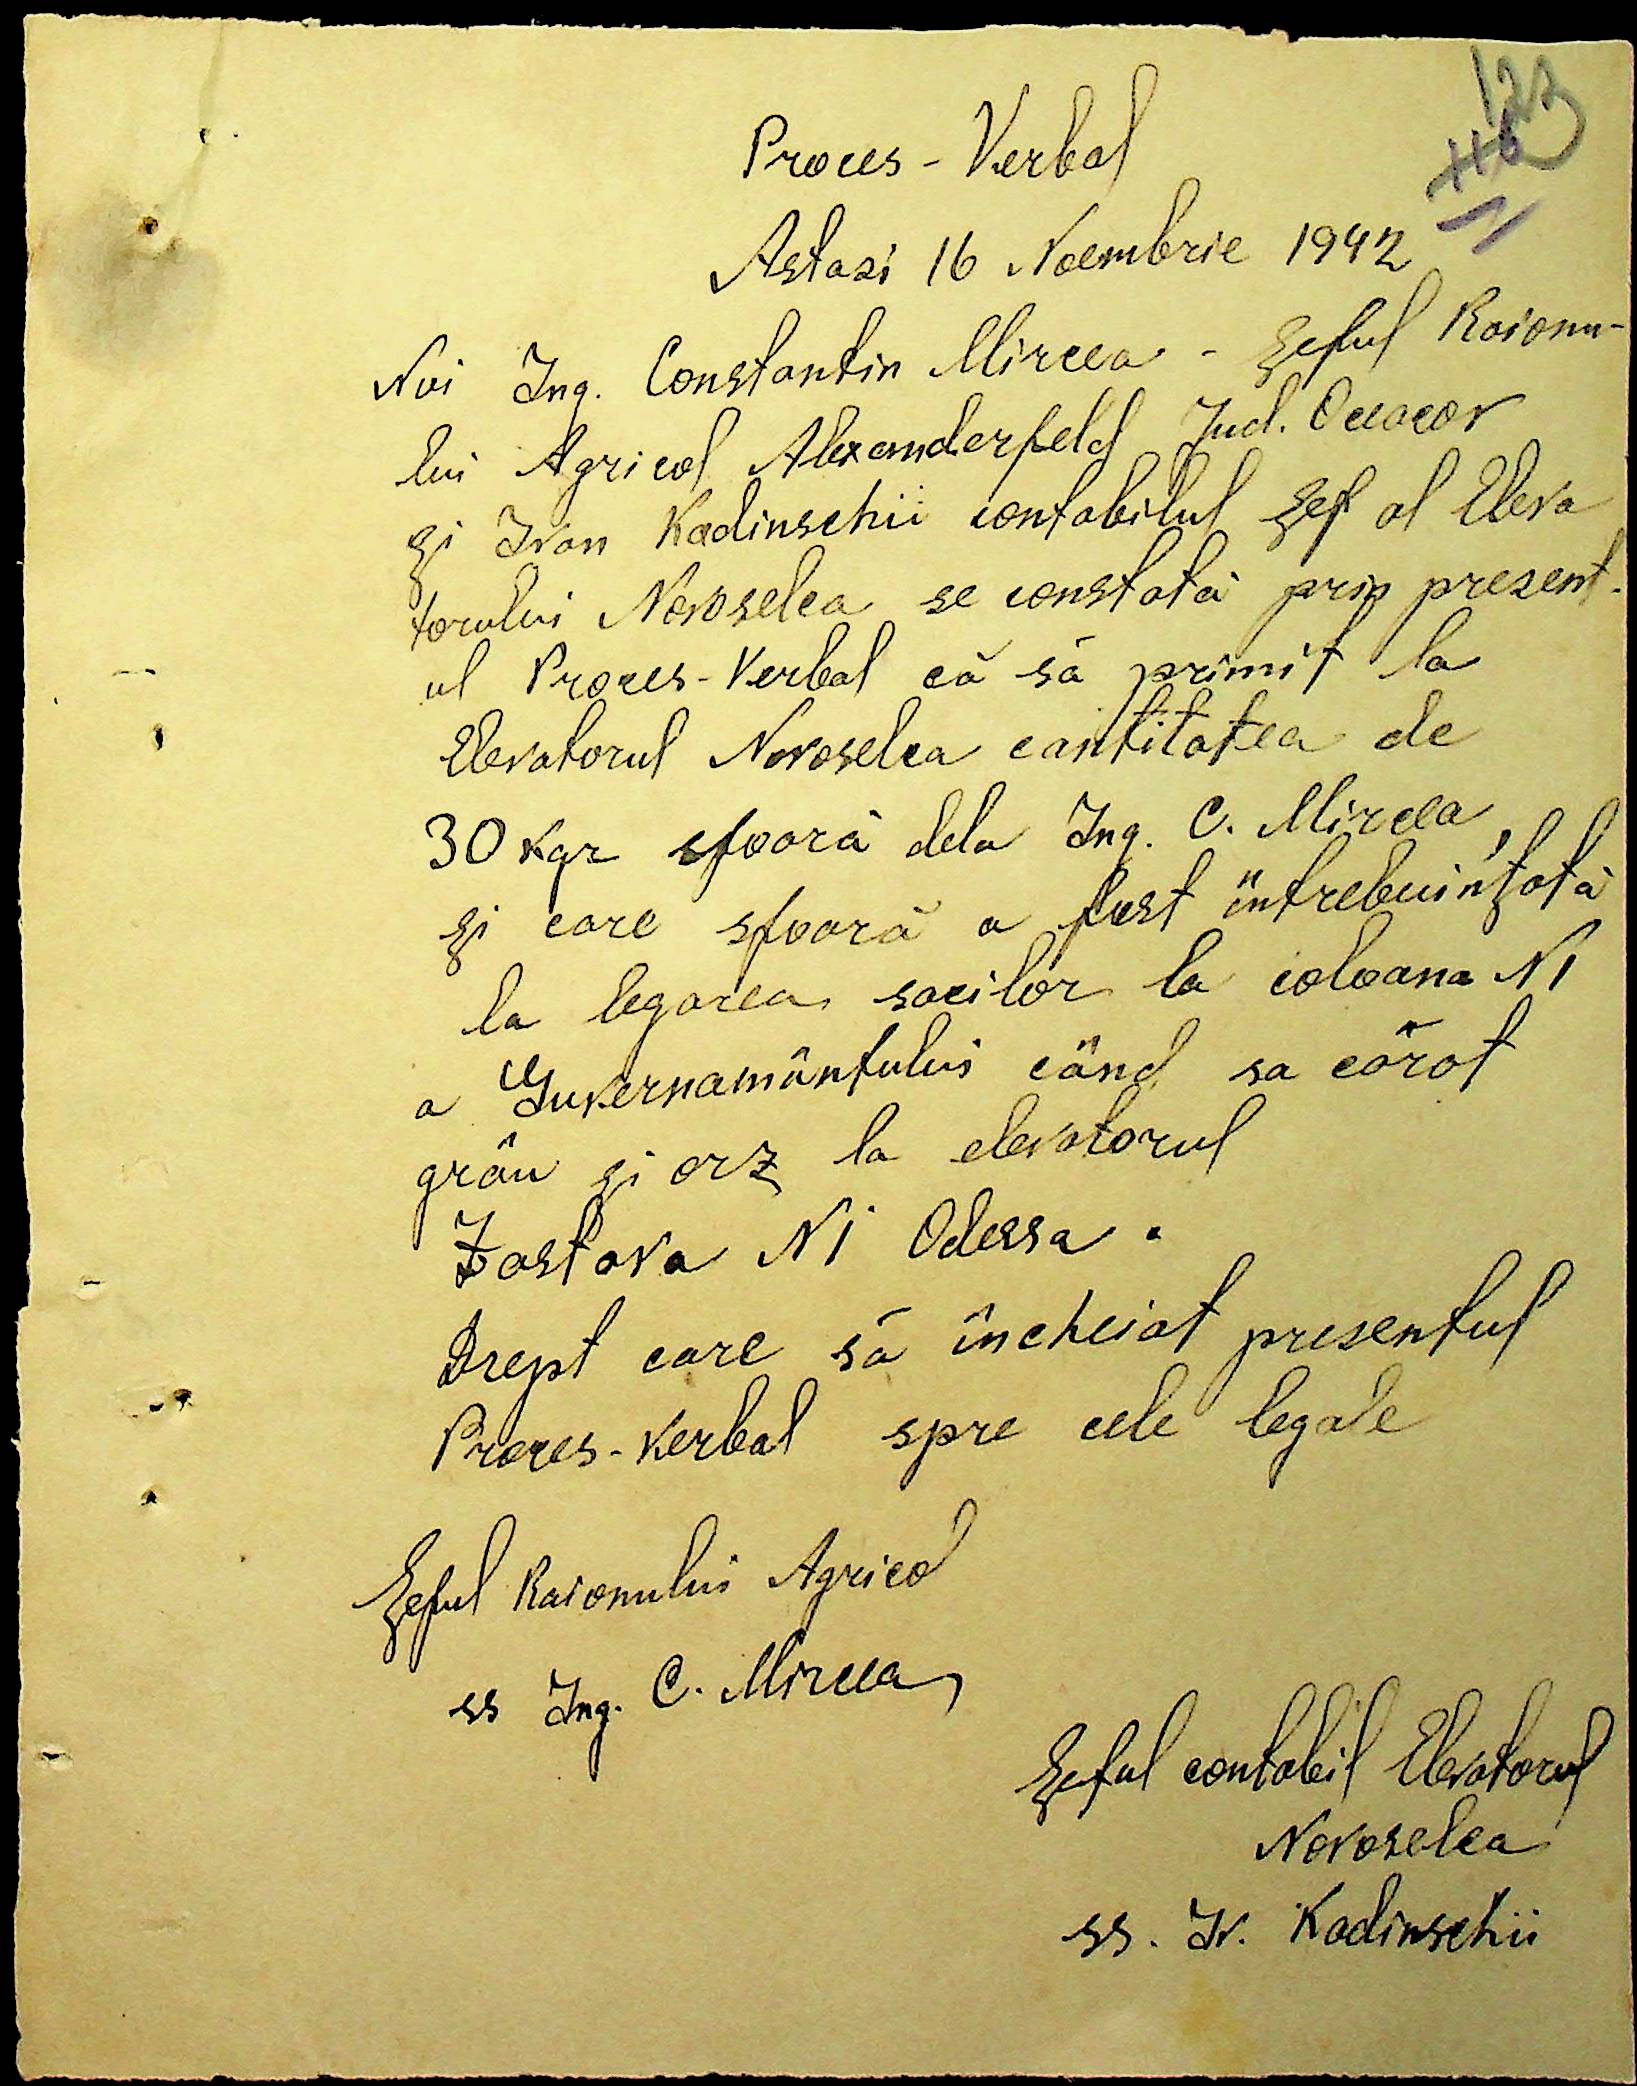 123
116
Proces - Verbal
Astazi 16 Noembrie 1942
Noi Ing. Constantin Mircea - Șeful Raionu-
lui Agricol Alexanderfeld Jud. Oceacov
și Ivan Kadinschii contabilul șef al Eleva
torului Novoselca se constată prin prezent-
ul Proces-Verbal că să primit la
Elevatorul Novoselca cantitatea de
30 kgr sfoară dela Ing. C. Mircea,
și care sfoară a fost întrebuințată
la legarea sacilor la coloana N1
a Guvernamântului când sa cărat
grâu și orz la elevatorul
Zastava N1 Odessa.
Drept care să încheiat prezentul
Proces-Verbal spre cele legale
Șeful Raionului Agricol
ss Ing. C. Mircea
Șeful contabil Elevatorul
Novoselca
ss. Iv. Kadinschii